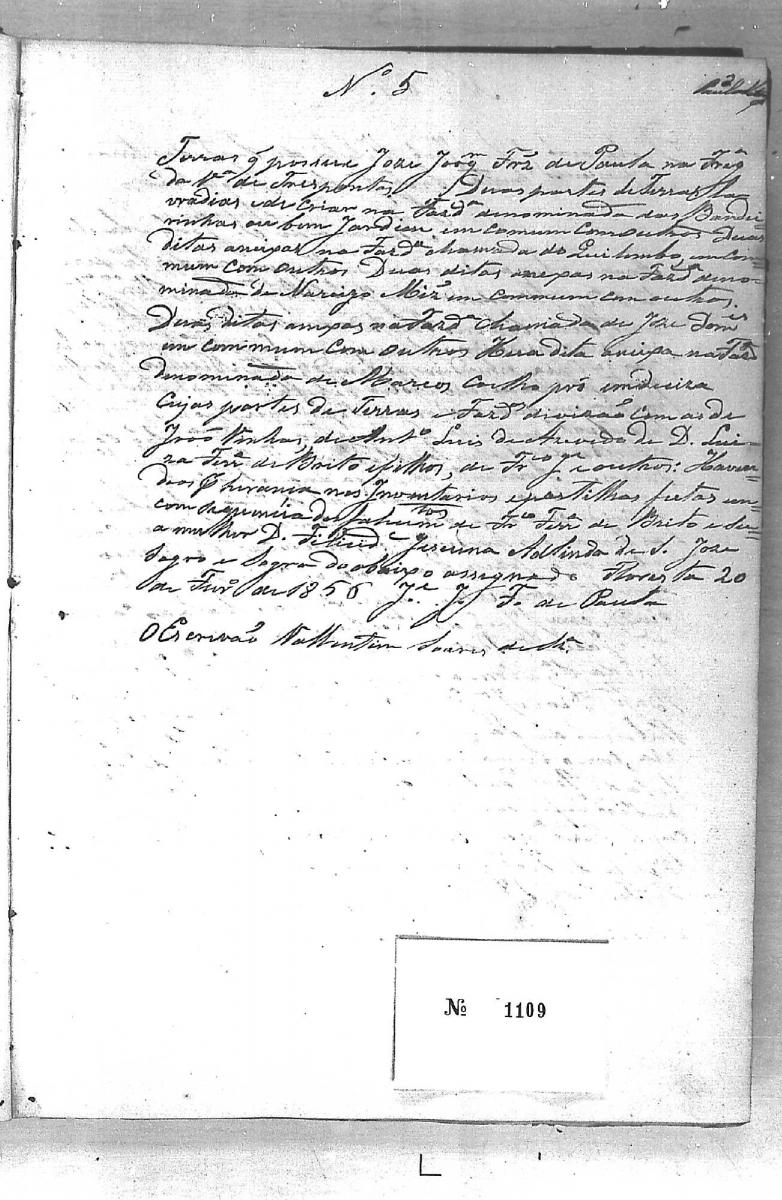 N.º 5
3
Terras q̃ possue Joze Joaqm Frz̃ de Paula na Freg.ª
da V.ª de Trespontas Duas partes de Terras la-
vradias e de criar na Fazd.ª denominada dos Bandei-
rinhas ou bom Jardim em comum com outros Duas
ditas anexas na Fazd.ª chamada do Quilombo, em com-
mum com outros Duas ditas anexas na Fazd.ª deno-
minada de Narcizo Miz̃ em commum com outros.
Duas ditas anexas na Fazd.ª chamada de Joze Domes
em commum com outros Hua dita anexa na Fazd.ª
denominada de Marcos Coelho pró indeviza
Cujas partes de Terras e Fazd.as divizão com as de
João Vinhas, de Ant.º Luis de Azevedo de D. Lui-
za Ferr.ª de Brito e filhos, de Fr.co J.e e outros: Haven-
do as p herança nos Inventarios e partilhas feitas em
comsequencia do falecim.tos de Fr.co Ferr.ª de Brito e Su-
a mulher D. Felicid.e Jescuina Adlinda de S. Joze
Sogro e Sogra do abaixo assignado Floresta 20
de Fevr.º de 1856 J.e J. F. de Paula
O Escrivão Vallentim Soares de
Nº 1109